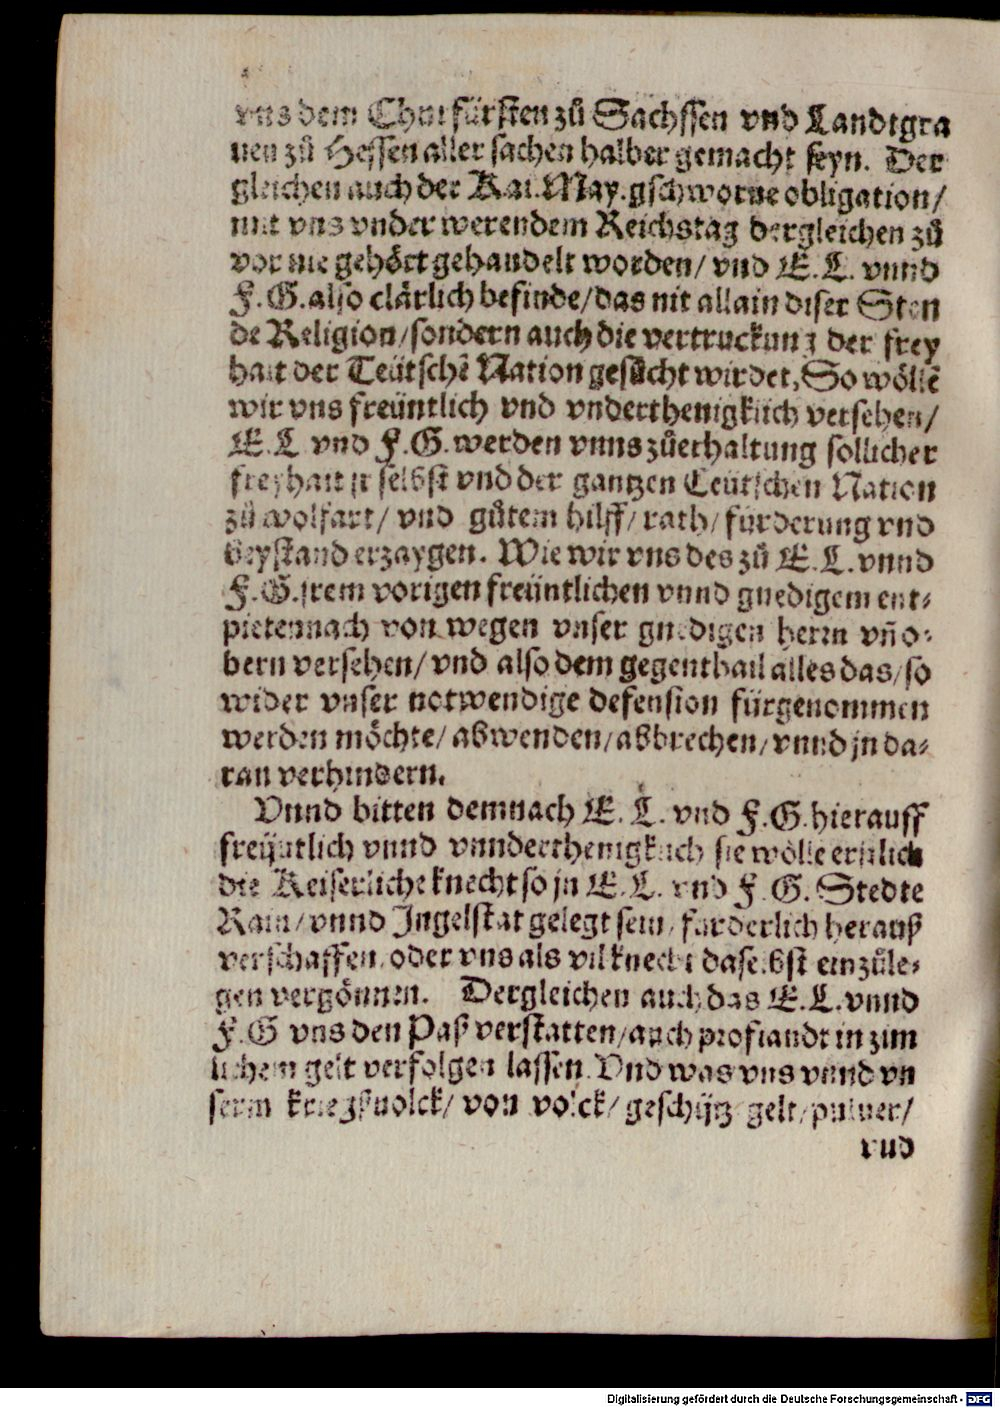 vns dem Churfürsten zů Sachssen vnd Landtgra
uen zů Hessen aller sachen halber gemacht seyn. Der
gleichen auch der Kai. May. gschworne obligation/
mit vns vnder werendem Reichstag dergleichen zů
vor nie gehört gehandelt worden/ vnd E. L. vnnd
F. G. also clärlich befinde/ das nit allain diser Sten
de Religion/ sondern auch die vertruckung der frey
hait der Teütschẽ Nation gesůcht wirdet, So wöllẽ
wir vns freüntlich vnd vnderthenigklich versehen/
E. L vnd F. G. werden vnns zůerhaltung sollicher
freyhait jr selbst vnd der gantzen Teütschen Nation
zů wolfart/ vnd gůtem hilff/ rath/ fürderung vnd
beystand erzaygen. Wie wir vns des zů E. L. vnnd
F. G. jrem vorigen freüntlichen vnnd gnedigem ent⸗
pieten nach von wegen vnser gnedigen herrn vñ o⸗
bern versehen/ vnd also dem gegenthail alles das/ so
wider vnser notwendige defension fürgenommen
werden möchte/ abwenden/ abbrechen/ vnnd jn da⸗
ran verhindern.
Vnnd bitten demnach E. L. vnd F. G. hierauff
freüntlich vnnd vnnderthenigklich sie wölle erstlich
die Keiserliche knecht so jn E. L. vnd F. G. Stedte
Rain/ vnnd Jngelstat gelegt sein/ fürderlich herauß
verschaffen, oder vns als vil knecht daselbst einzůle⸗
gen vergönnen. Dergleichen auch das E. L. vnnd
F. G vns den Paß verstatten/ auch profiandt in zim
lichem gelt verfolgen lassen. Vnd was vns vnnd vn
serm kriegßuolck/ von volck/ geschütz gelt/ puluer/
vnd
Digitalisierung gefördert durch die Deutsche Forschungsgemeinschaft - DFG